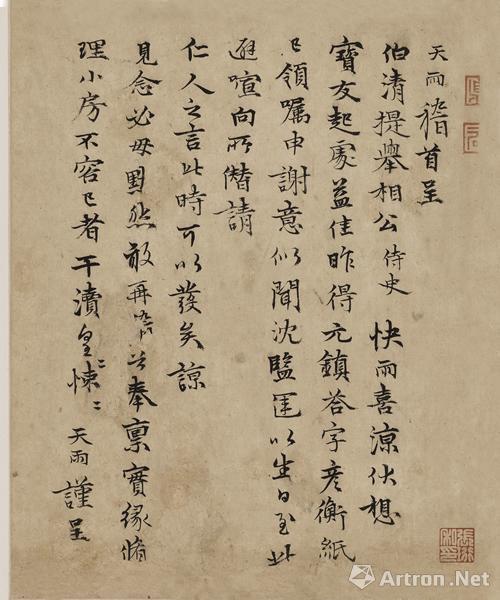 天雨稽首呈
伯清提舉相公侍史 快雨喜涼伏想
寶友起處益佳昨得元鎮荅字彦衡紙
已領嘱申謝意似聞沈監運以生日至此
避喧向所僭請
仁人之言此時可以發矣諒
見念必毋罔然敢再啓奉稟實緣脩
理小房不容已者干瀆皇〻悚〻
天雨謹呈
Artron.Net